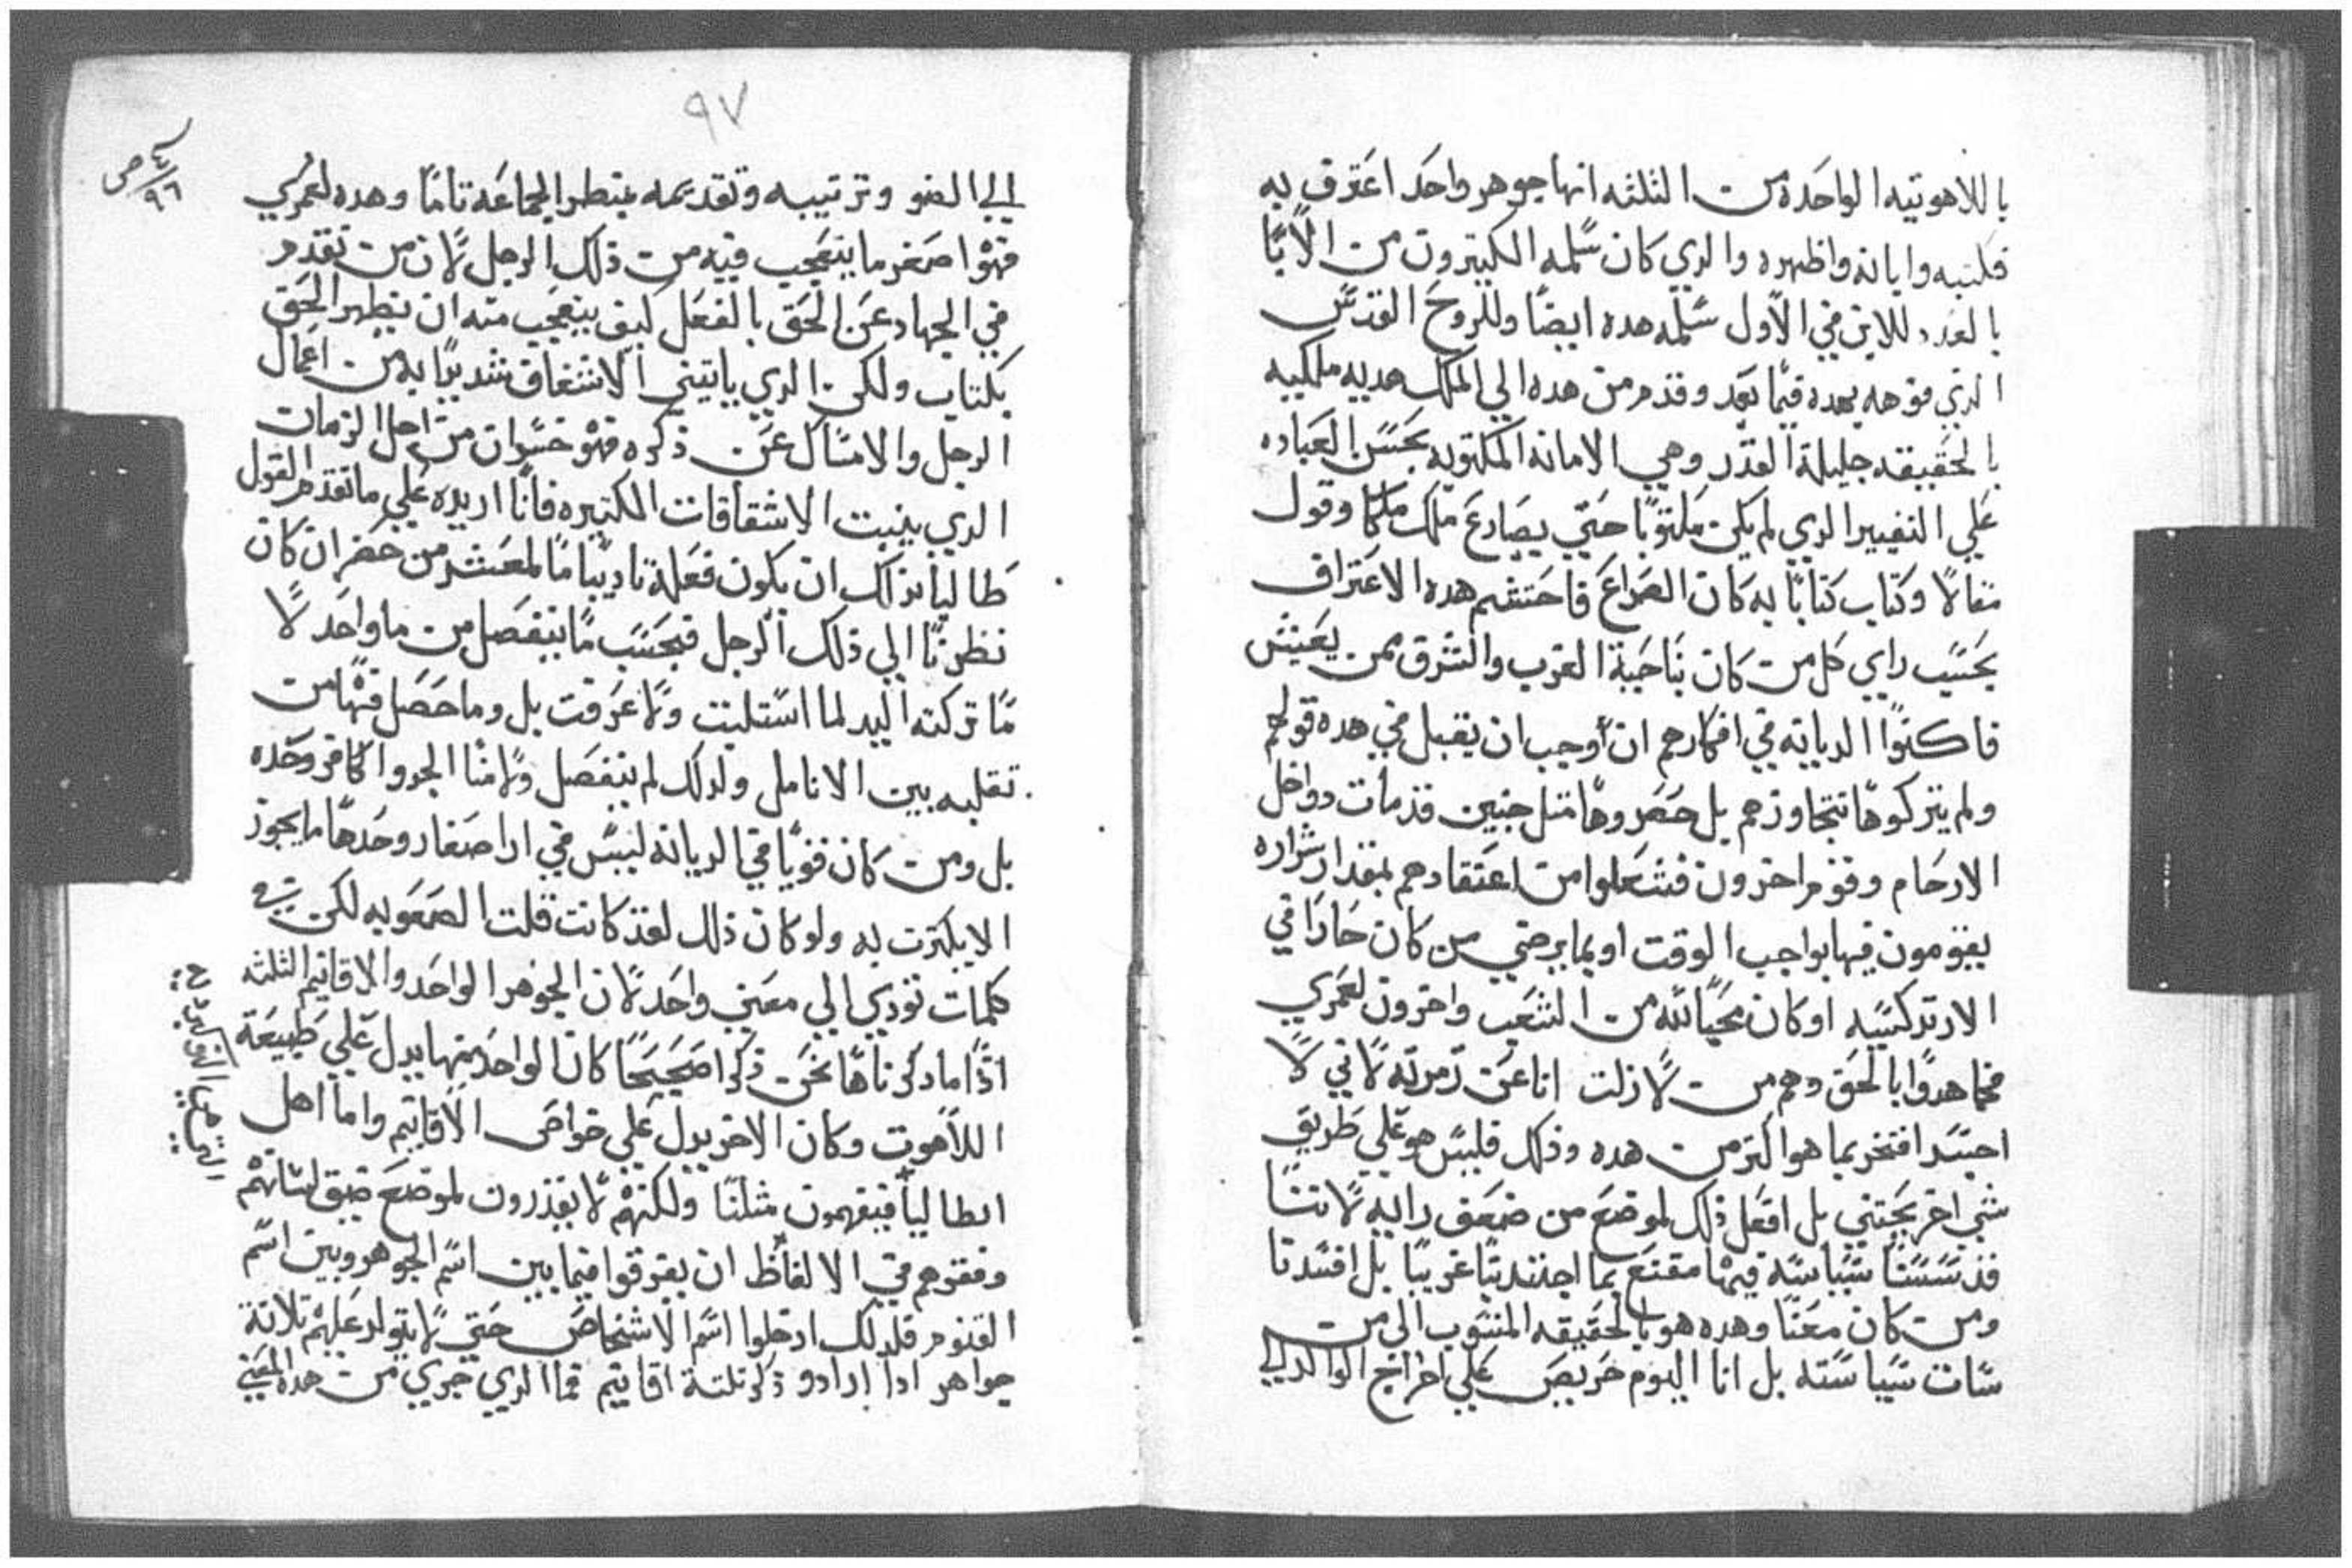 باللاهوتيه الواحده من الثلثه انها جوهر واحد اعترف به
فكتبه وابانه واظهره والدي كان سلمه الكتيرون من الابا
بالعدد للابن في الاول سلمه هده ايضا وللروح القدس
الدي فوهه بهده فيما بعد وقدم من هده الي الملك هديه ملكيه
بالحقيقه جليلة القدر وهي الامانه المكتوبه بحسن العباده
علي التغيير الدي لم يكن مكتوبا حتي يصارع ملك ملكا وقول
مقالا وكتاب كتابا به كان الصراع فاحتشم هده الاعتراف
بحسب راي كل من كان بناحية الغرب والشرق ممن يعيش
فاكنوا الديانه في افكارهم ان أوجب ان يقبل في هده قولهم
ولم يتركوها تتجاوزهم بل حصروها متل جنين قد مات دواخل
الارحام وقوم اخرون فشعلوا من اعتقادهم بمقدار شراره
يقومون فيها بواجب الوقت او بما يرضي من كان حارا في
الارتدكسيه او كان محبا لله من الشعب واخرون لعمري
فجاهدوا بالحق وهم من لا زلت انا عن زمرته لاني لا
اجسد افتخر بما هو اكتر من هده وذلك فليس هو علي طريق
شي اخر بجتني بل افعل ذلك لموضع من ضعف رايه لاننا
قد سسنا سياسه فيها مقنع بما اجتدبنا غريبا بل افسدنا
ومن كان معنا وهده هو بالحقيقه المنسوب الي من
سات سياسته بل انا اليوم حريص علي اخراج الوالد الي
٩٧
٤ ص
٩٦
الي الضو وترتيبه وتقديمه بنظر الجماعه تاما وهده لعمري
فهو اصغر ما يتعجب فيه من ذلك الرجل لان من تقدم
في الجهاد عن الحق بالفعل كيف يتعجب منه ان يظهر الحق
بكتاب ولكن الدي ياتيني الاشغاف شديدا به من اعمال
الرجل والامساك عن ذكره فهو خسران من اجل الزمان
الدي ينبت الاشقاقات الكتيره فانا اريده علي ما تقدم القول
طالبا بذلك ان يكون فعله تاديبا ما لمعشر من حضر ان كان
نظرنا الي ذلك الرجل فبحسب ما ينفصل من ما واحد لا
ما تركته اليد لما استلبت ولا غرفت بل وما حصل فيها من
تقلبه بين الانامل ولدلك لم ينفصل ولا منا الجرو الكافر وحده
بل ومن كان قويا في الديانه ليس في ارا صغار وحدها ما يجوز
الا يكترت به ولو كان ذلك لقد كانت قلت الصعوبه لكن في
كلمات تودي الي معني واحد لان الجوهر الواحد والاقانيم الثلثه
اذا ما دكرناها نحن ذكرا صحيحا كان الواحد منها يدل علي طبيعة
اللاهوت وكان الاخر يدل علي خواص الاقانيم واما اهل
ايطاليا فيفهمون مثلنا ولكنهم لا يقدرون لموضع ضيق لسانهم
وفقرهم في الالفاظ ان يفرقوا فيما بين اسم الجوهر وبين اسم
القنوم فلدلك ادخلوا اسم الاشخاص حتي لا يتولد عليهم تلاتة
جواهر ادا ارادو ذكر تلتة اقانيم فما الدي جري من هده المعني